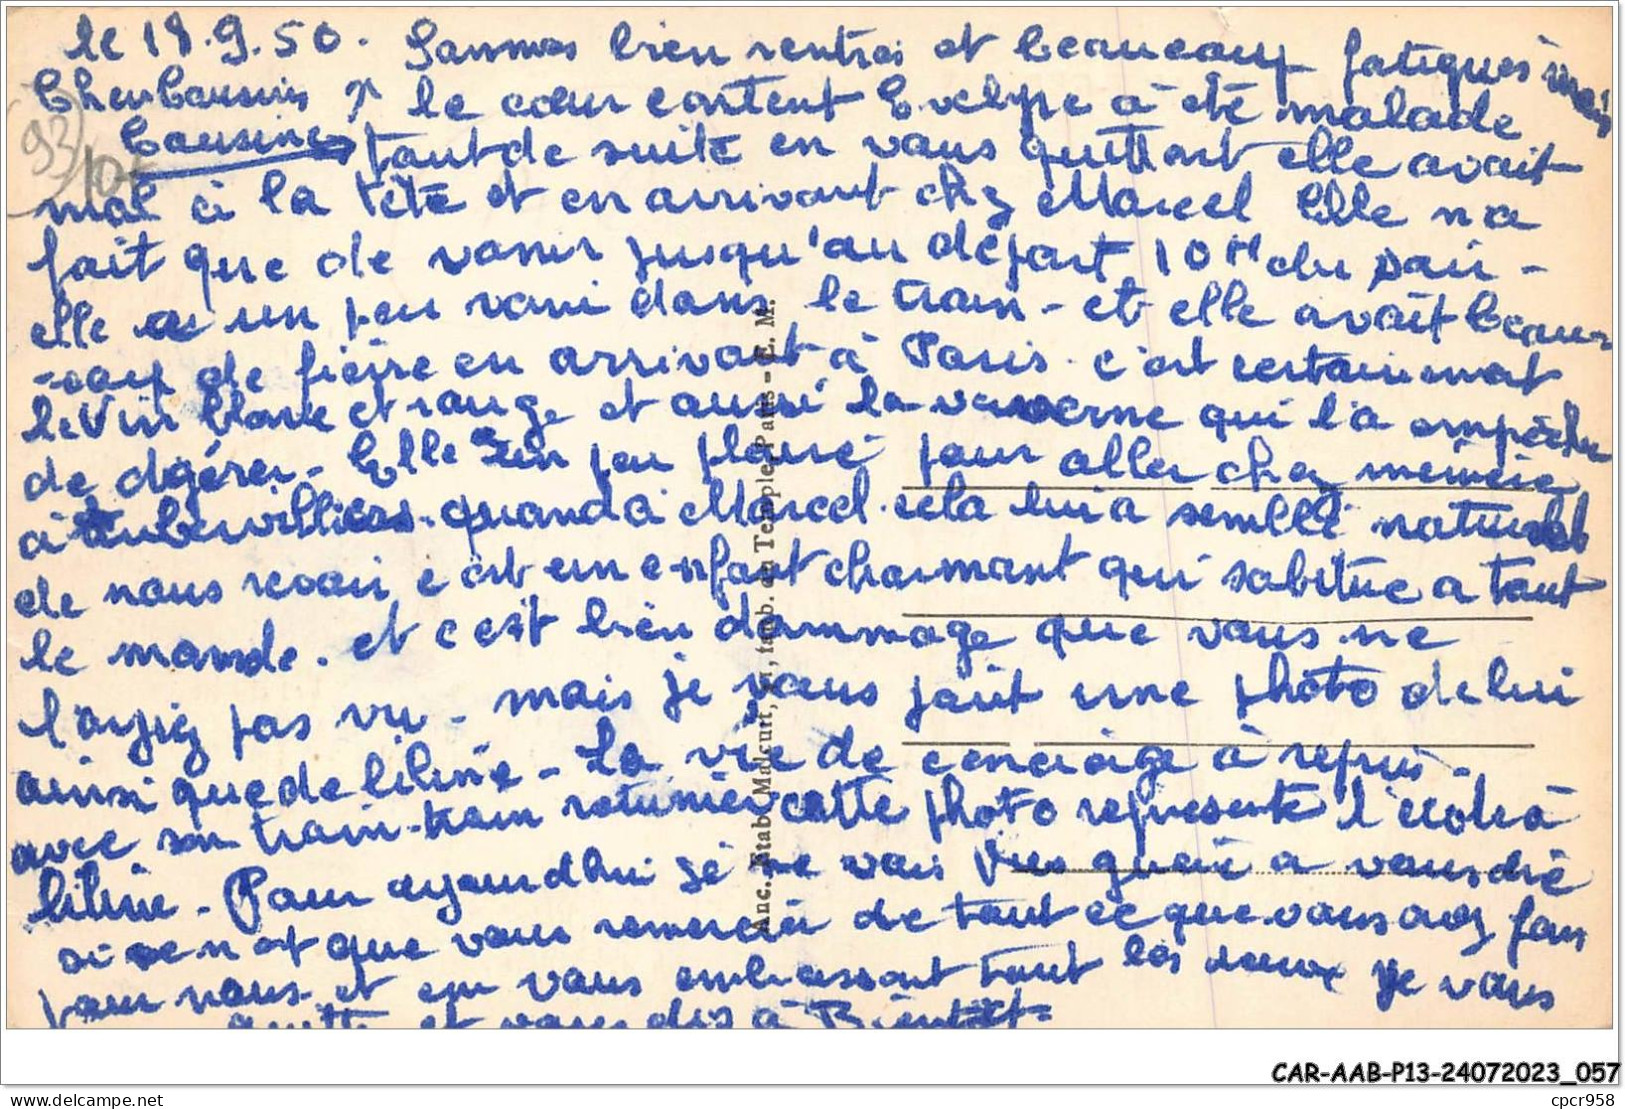 le 18.9.50. Sommes bien rentrés et beaucoup fatigués mais
Cher Cousins le cœur content Evelyne a été malade
Cousine tout de suite en vous quittant elle avait
mal à la tête et en arrivant chez Marcel Elle n a
fait que de vomir jusqu'au départ 10 H du soir -
elle a un peu vomi dans le train - et elle avait beau
-coup de fièvre en arrivant à Paris. c'est certainement
le Vin blanc et rouge et aussi la qui l'a empêcher
de digérer - Elle a un peu pleuré pour aller chez mémère
à Aubervilliers. quand à Marcel cela lui a semblé naturel
de nous revoir c est un enfant charmant qui sabitue a tout
le monde. et c est bien dommage que vous ne
l'ayiez pas vu - mais je vous joint une photo de lui
ainsi que de liline - La vie de concierge à repris -
avec son train-train cette photo représente l'école à
liline - Pour aujourdhui je ne vois plus a vous dire
si ce n est que vous remercier de tout ce que vous avez fait
pour nous et en vous embrassant tout les deux je vous
quitte et vous dis à Bientôt
93
10F
Anc. Etab. Malcuit, faub. du Temple, Paris - C. M.
CAR-AAB-P13-24072023_057
delcampe.net
cpcr958